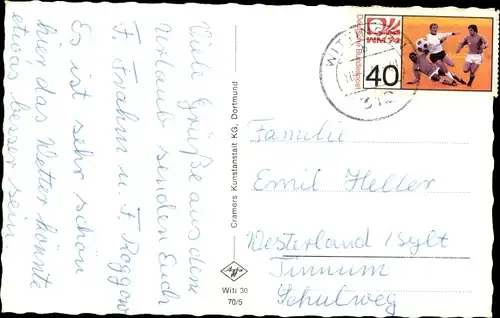 Viele Grüße aus dem
Urlaub senden Euch
F. Frahm u. F. Roggow
Es ist sehr schön
hier das Wetter könnte
etwas besser sein
Cramers Kunstanstalt KG, Dortmund
Agfa
Witi 30
70/5
WM 74
Deutsche Bundespost
40
312
Familie
Emil Heller
Westerland/Sylt
Tinnum
Schulweg